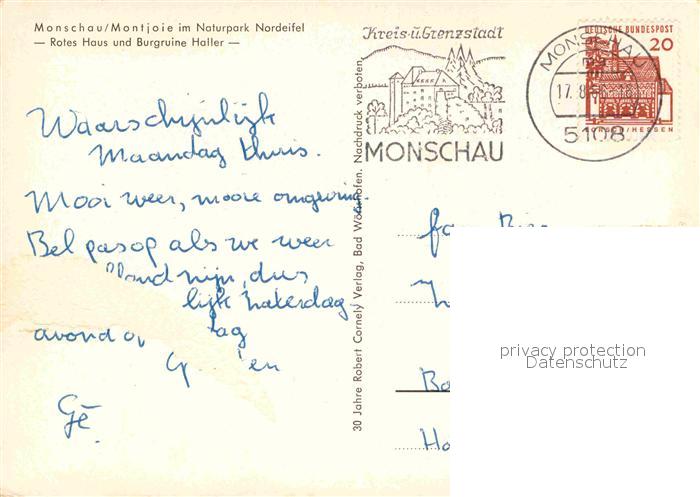 Monschau/Montjoie im Naturpark Nordeifel
— Rotes Haus und Burgruine Haller —
Kreis-u.Grenzstadt
MONSCHAU
MONSCHAU
17. 8.
5108
DEUTSCHE BUNDESPOST
20
LORSCH/HESSEN
Waarschijnlijk
Maandag thuis.
Mooi weer, mooie omgeving.
Bel pas op als we weer
land zijn, dus
lijk zaterdag
avond of
Gé
30 Jahre Robert Cornely Verlag, Bad Wörishofen. Nachdruck verboten.
fam.
Ho
privacy protection
Datenschutz